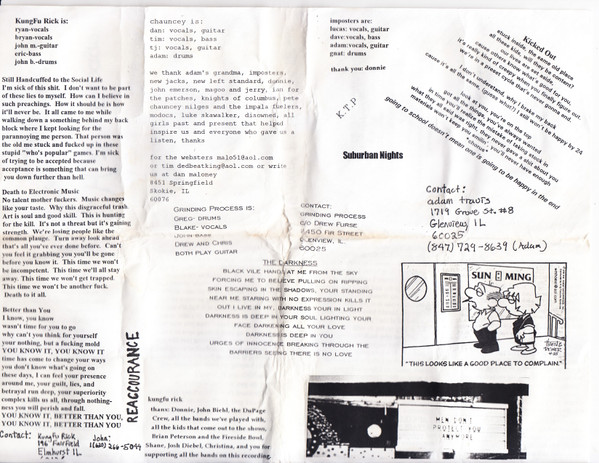 KungFu Rick is:
ryan-vocals
bryan-vocals
john m.-guitar
eric-bass
john h.-drums
Still Handcuffed to the Social Life
I'm sick of this shit. I don't want to be part
of these lies to myself. How can I believe in
such preachings. How it should be is how
it'll never be. It all came to me while
walking down a something behind my back
block where I kept looking for the
parannoying me person. That person was
the old me stuck and fucked up in these
stupid "who's popular" games. I'm sick
of trying to be accepted because
acceptance is something that can bring
you down further than hell.
Death to Electronic Music
No talent mother fuckers. Music changes
like your taste. Why this disgraceful trash.
Art is soul and good skill. This is hunting
for the kill. It's not a threat but it's gaining
strength. We're losing people like the
common plauge. Turn away look ahead
that's all you're ever done before. Can't
you feel it grabbing you you'll be gone
before you know it. This time we won't
be incompetent. This time we'll all stay
away. This time we won't get trapped.
This time we won't be another fuck.
Death to it all.
Better than You
I know, you know
wasn't time for you to go
why can't you think for yourself
your nothing, but a fucking mold
YOU KNOW IT, YOU KNOW IT
time has come to change your ways
you don't know what's going on
these days, I can feel your presence
around me, your guilt, lies, and
betrayal run deep, your superiority
complex kills us all, through nothing-
ness you will perish and fall.
YOU KNOW IT, BETTER THAN YOU,
YOU KNOW IT, BETTER THAN YOU
Contact: Kung Fu Rick
196 Fairfield
Elmhurst IL
John:
REACCOURANCE
chauncey is:
dan: vocals, guitar
tim: vocals, bass
tj: vocals, guitar
adam: drums
we thank adam's grandma, imposters,
new jacks, new left standard, donnie,
john emerson, magoo and jerry, ion for
the patches, knights of columbus, pete
chauncey milges and the impala fuelers,
modocs, luke skawalker, disowned, all
girls past and present that helped
inspire us and everyone who gave us a
listen, thanks
for the websters malo51@aol.com
or tim dedbeatking@aol.com or write
us at dan maloney
8451 Springfield
Skokie, IL
60076
GRINDING PROCESS IS:
GREG- DRUMS
BLAKE- VOCALS
JOHN-BASS
DREW AND CHRIS
BOTH PLAY GUITAR
CONTACT:
GRINDING PROCESS
C/O DREW FURSE
FIR STREET
GLENVIEW, IL.
60025
THE DARKNESS
BLACK VILE HANDS AT ME FROM THE SKY
FORCING ME TO BELIEVE PULLING ON RIPPING
SKIN ESCAPING IN THE SHADOWS, YOUR STANDING
NEAR ME STARING WITH NO EXPRESSION KILLS IT
OUT I LIVE IN MY, DARKNESS YOUR IN LIGHT
DARKNESS IS DEEP IN YOUR SOUL LIGHTING YOUR
FACE DARKENING ALL YOUR LOVE
DARKNESS IS DEEP IN YOU
URGES OF INNOCENCE BREAKING THROUGH THE
BARRIERS SEEING THERE IS NO LOVE
kungfu rick
thanx: Donnie, John Biehl, the DuPage
Crew, all the bands we've played with,
all the kids that come out to the shows,
Brian Peterson and the Fireside Bowl,
Shane, Josh Diebel, Christina, and you for
supporting all the bands on this recording.
imposters are:
lucas: vocals, guitar
dave:vocals, bass
adam:vocals, guitar
gnat: drums
thank you: donnie
K.T.P
Suburban Nights
Kicked Out
stuck inside, the same old place
all these kids, will they be gone
cause others know what's good for you,
going to school doesn't mean one is going to be happy in the end
Contact:
adam travis
1719 Grove St. #8
Glenview, IL
60025
(847) 729-8639 (Adam)
SUN MING
"THIS LOOKS LIKE A GOOD PLACE TO COMPLAIN."
MEN DON'T
PROTECT YOU
ANYMORE